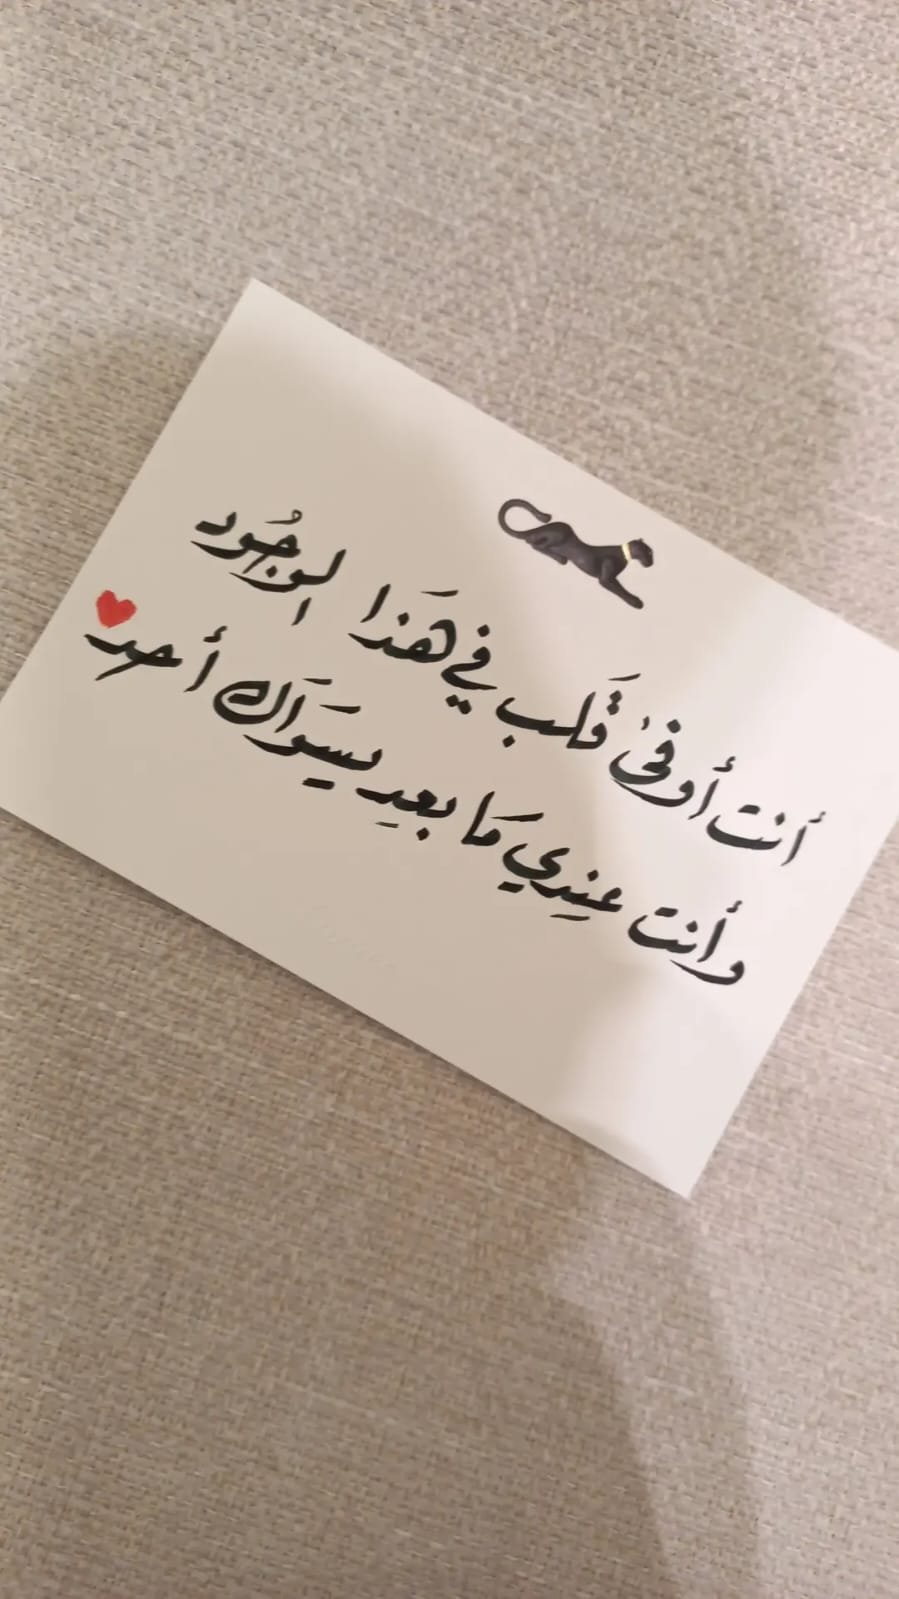 أنت أوفىٰ قَلب في هَذا الوجُود
وأنت عِندي مَا بعدِ يسوَاك أحد